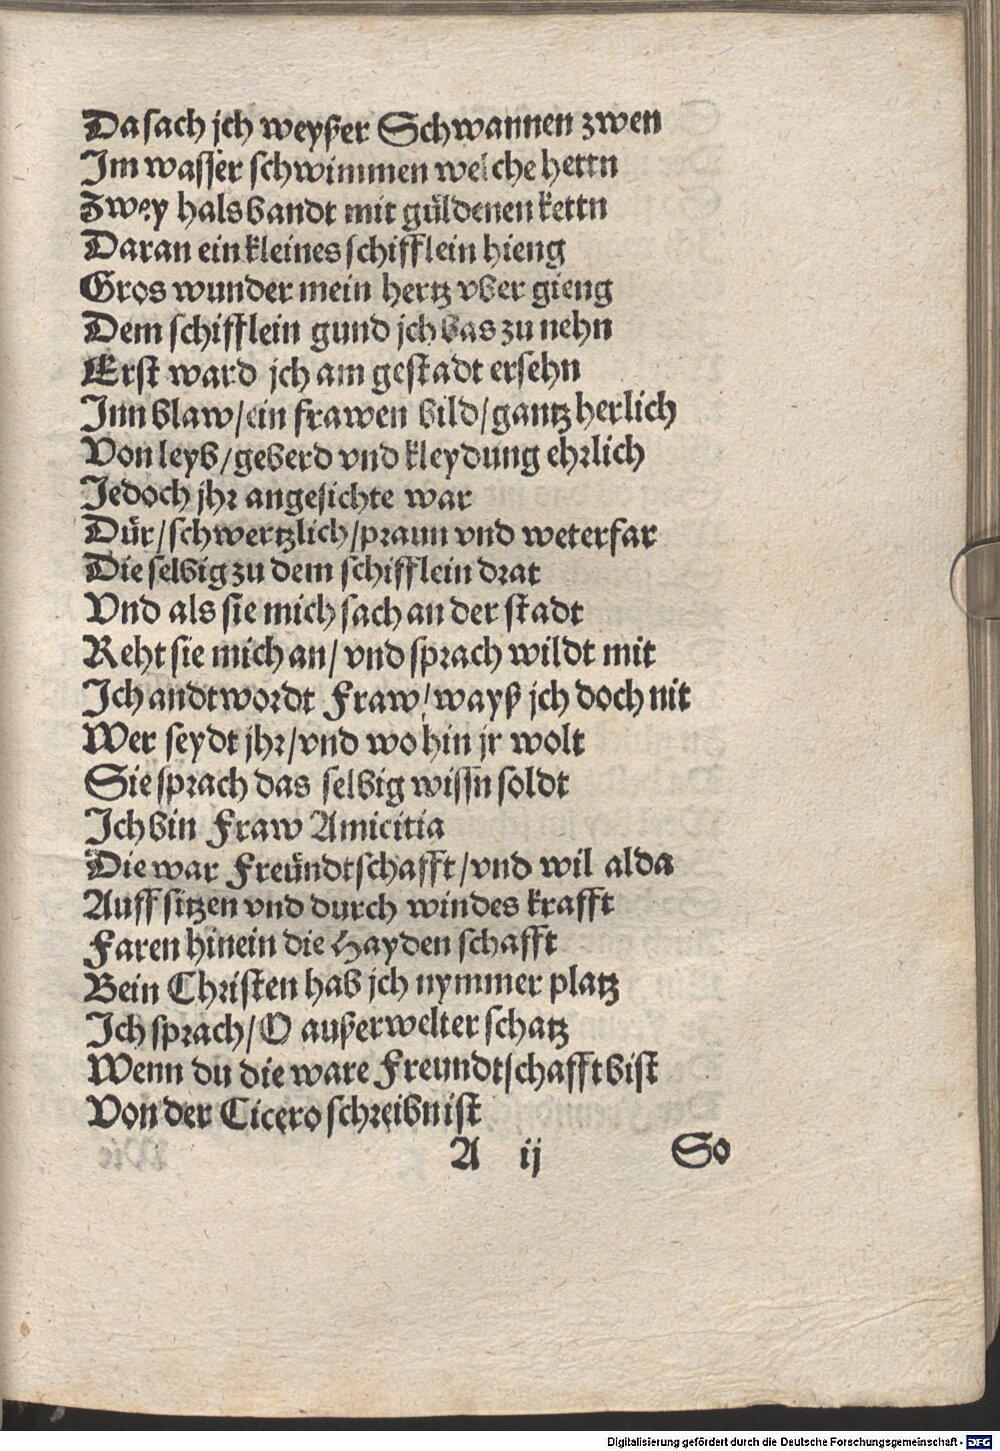 Da sach jch weyßer Schwannen zwen
Im wasser schwimmen welche hettn
Zwey halsbandt mit güldenen kettn
Daran ein kleines schifflein hieng
Gros wunder mein hertz vber gieng
Dem schifflein gund jch bas zu nehn
Erst ward jch am gestadt ersehn
Inn blaw/ein frawen bild/gantz herlich
Von leyb/geberd vnd kleydung ehrlich
Jedoch jhr angesichte war
Dür/schwertzlich/praun vnd weterfar
Die selbig zu dem schifflein drat
Vnd als sie mich sach an der stadt
Reht sie mich an/vnd sprach wildt mit
Ich andtwordt Fraw/wayß jch doch nit
Wer seydt jhr/vnd wo hin jr wolt
Sie sprach das selbig wissn soldt
Ich bin Fraw Amicitia
Die war Freündtschafft/vnd wil alda
Auff sitzen vnd durch windes krafft
Faren hinein die Hayden schafft
Bein Christen hab jch nymmer platz
Ich sprach/O außerwelter schatz
Wenn du die ware Freundtschafft bist
Von der Cicero schreibn ist
A ij So
Digitalisierung gefördert durch die Deutsche Forschungsgemeinschaft - DFG